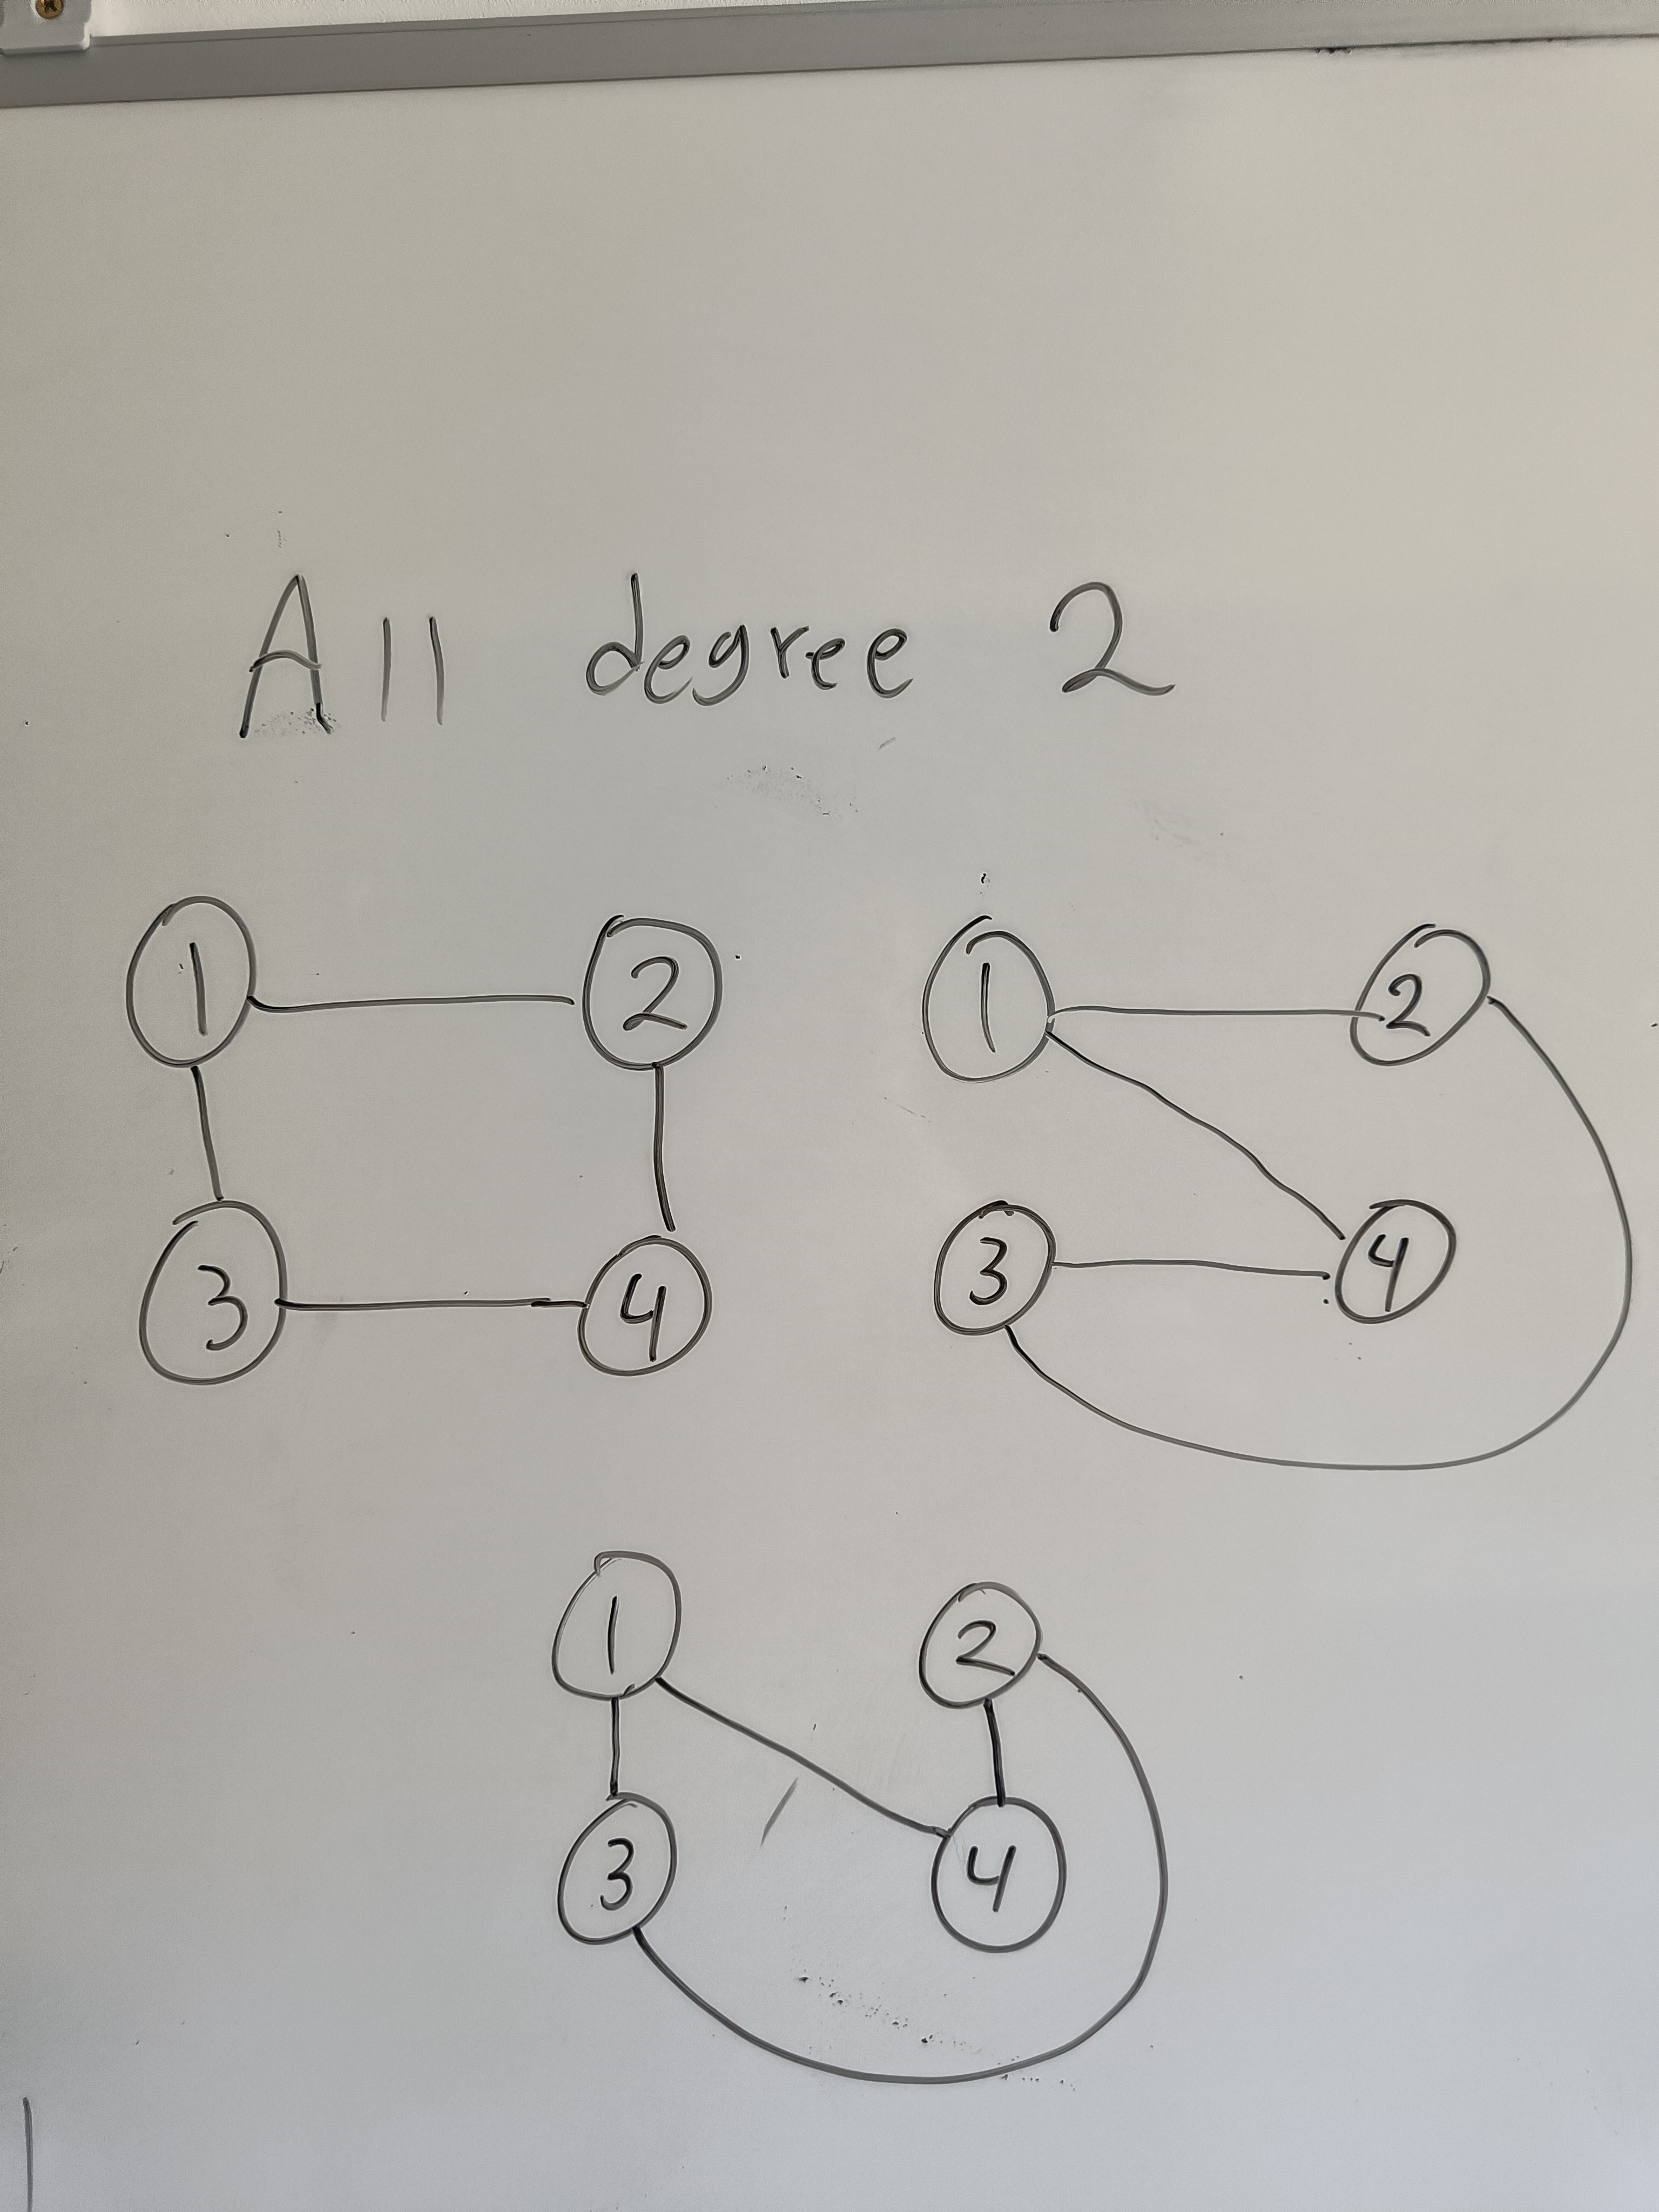 All degree 2
1 2 1 2
3 4 3 4
1 2
3 4